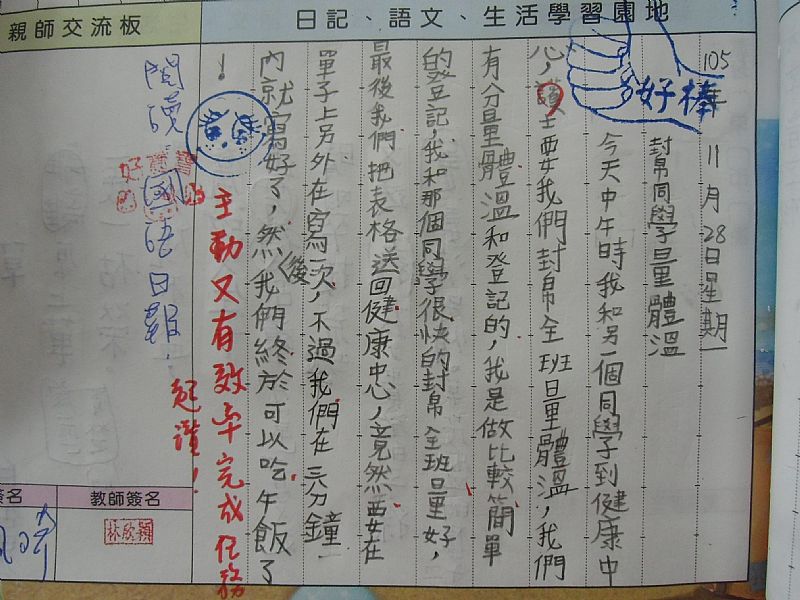 日記、語文、生活學習園地
親師交流板
好棒
105年11月28日星期一
幫同學量體溫
今天中午時我和另一個同學到健康中
心,護士要我們幫全班量體溫,我們
有分量體溫和登記的,我是做比較簡單
的登記,我和那個同學很快的幫全班量好,
最後我們把表格送回健康中心,竟然要在
單子上另外在寫一次,不過我們在三分鐘
內就寫好了,然後我們終於可以吃午飯了
!
主動又有效率完成任務
超讚!
閱讀國語日報.
好寶寶
教師簽名
簽名